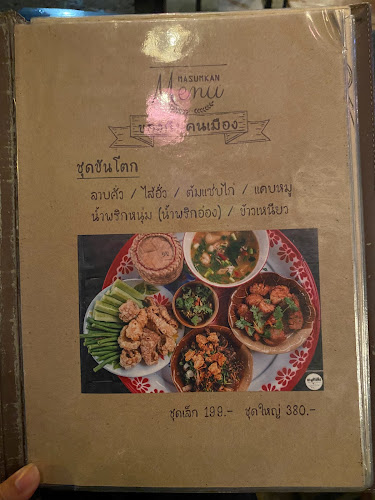 MASUMKAN
Menu
คนเมือง
ชุดขันโตก
ลาบคั่ว / ไส้อั่ว / ต้มแซ่บไก่ / แคบหมู
น้ำพริกหนุ่ม (น้ำพริกอ่อง) / ข้าวเหนียว
ชุดเล็ก 199.- ชุดใหญ่ 380.-